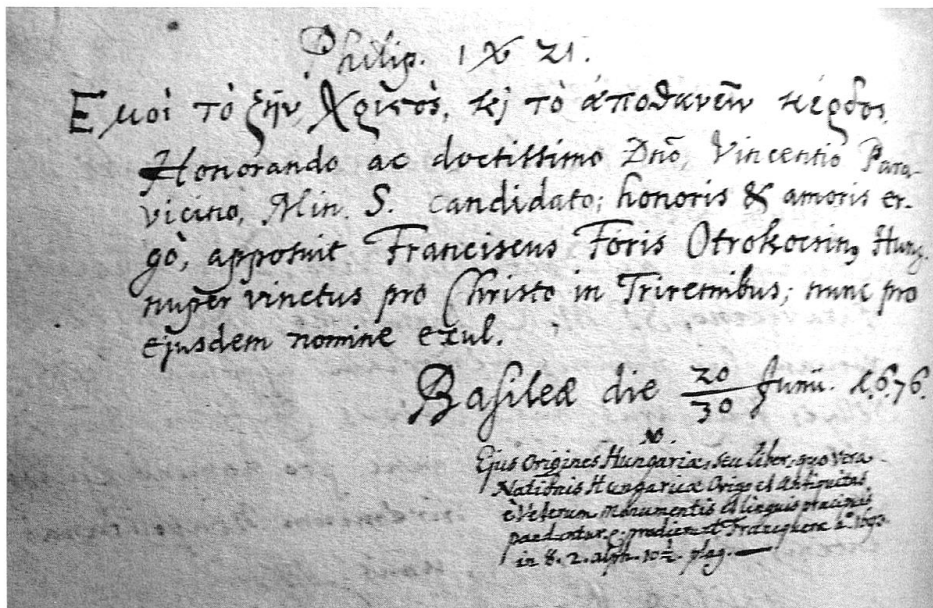 Philip. 1 X 21.
Εμοὶ τὸ ζῆν Χριστὸς, κ τὸ ἀποθανεῖν κέρδος.
Honorando ac doctissimo Dnō, Vincentio Para-
vicino, Min. S. candidato; honoris & amoris er-
gò, apposuit Franciscus Foris Otrokocsinus Hung.
nuper vinctus pro Christo in Triremibus; nunc pro
ejusdem nomine exul.
Basileæ die 20/30 Junii. 1676.
NB.
Ejus Origines Hungariæ, seu liber, quo vera
Nationis Hungaricæ Origo et Antiquitas
è Veterum Monumentis et linguis præcipuis
panduntur, prodierunt Franequeræ 1693
in 8. 2. alph. 10½ plag.